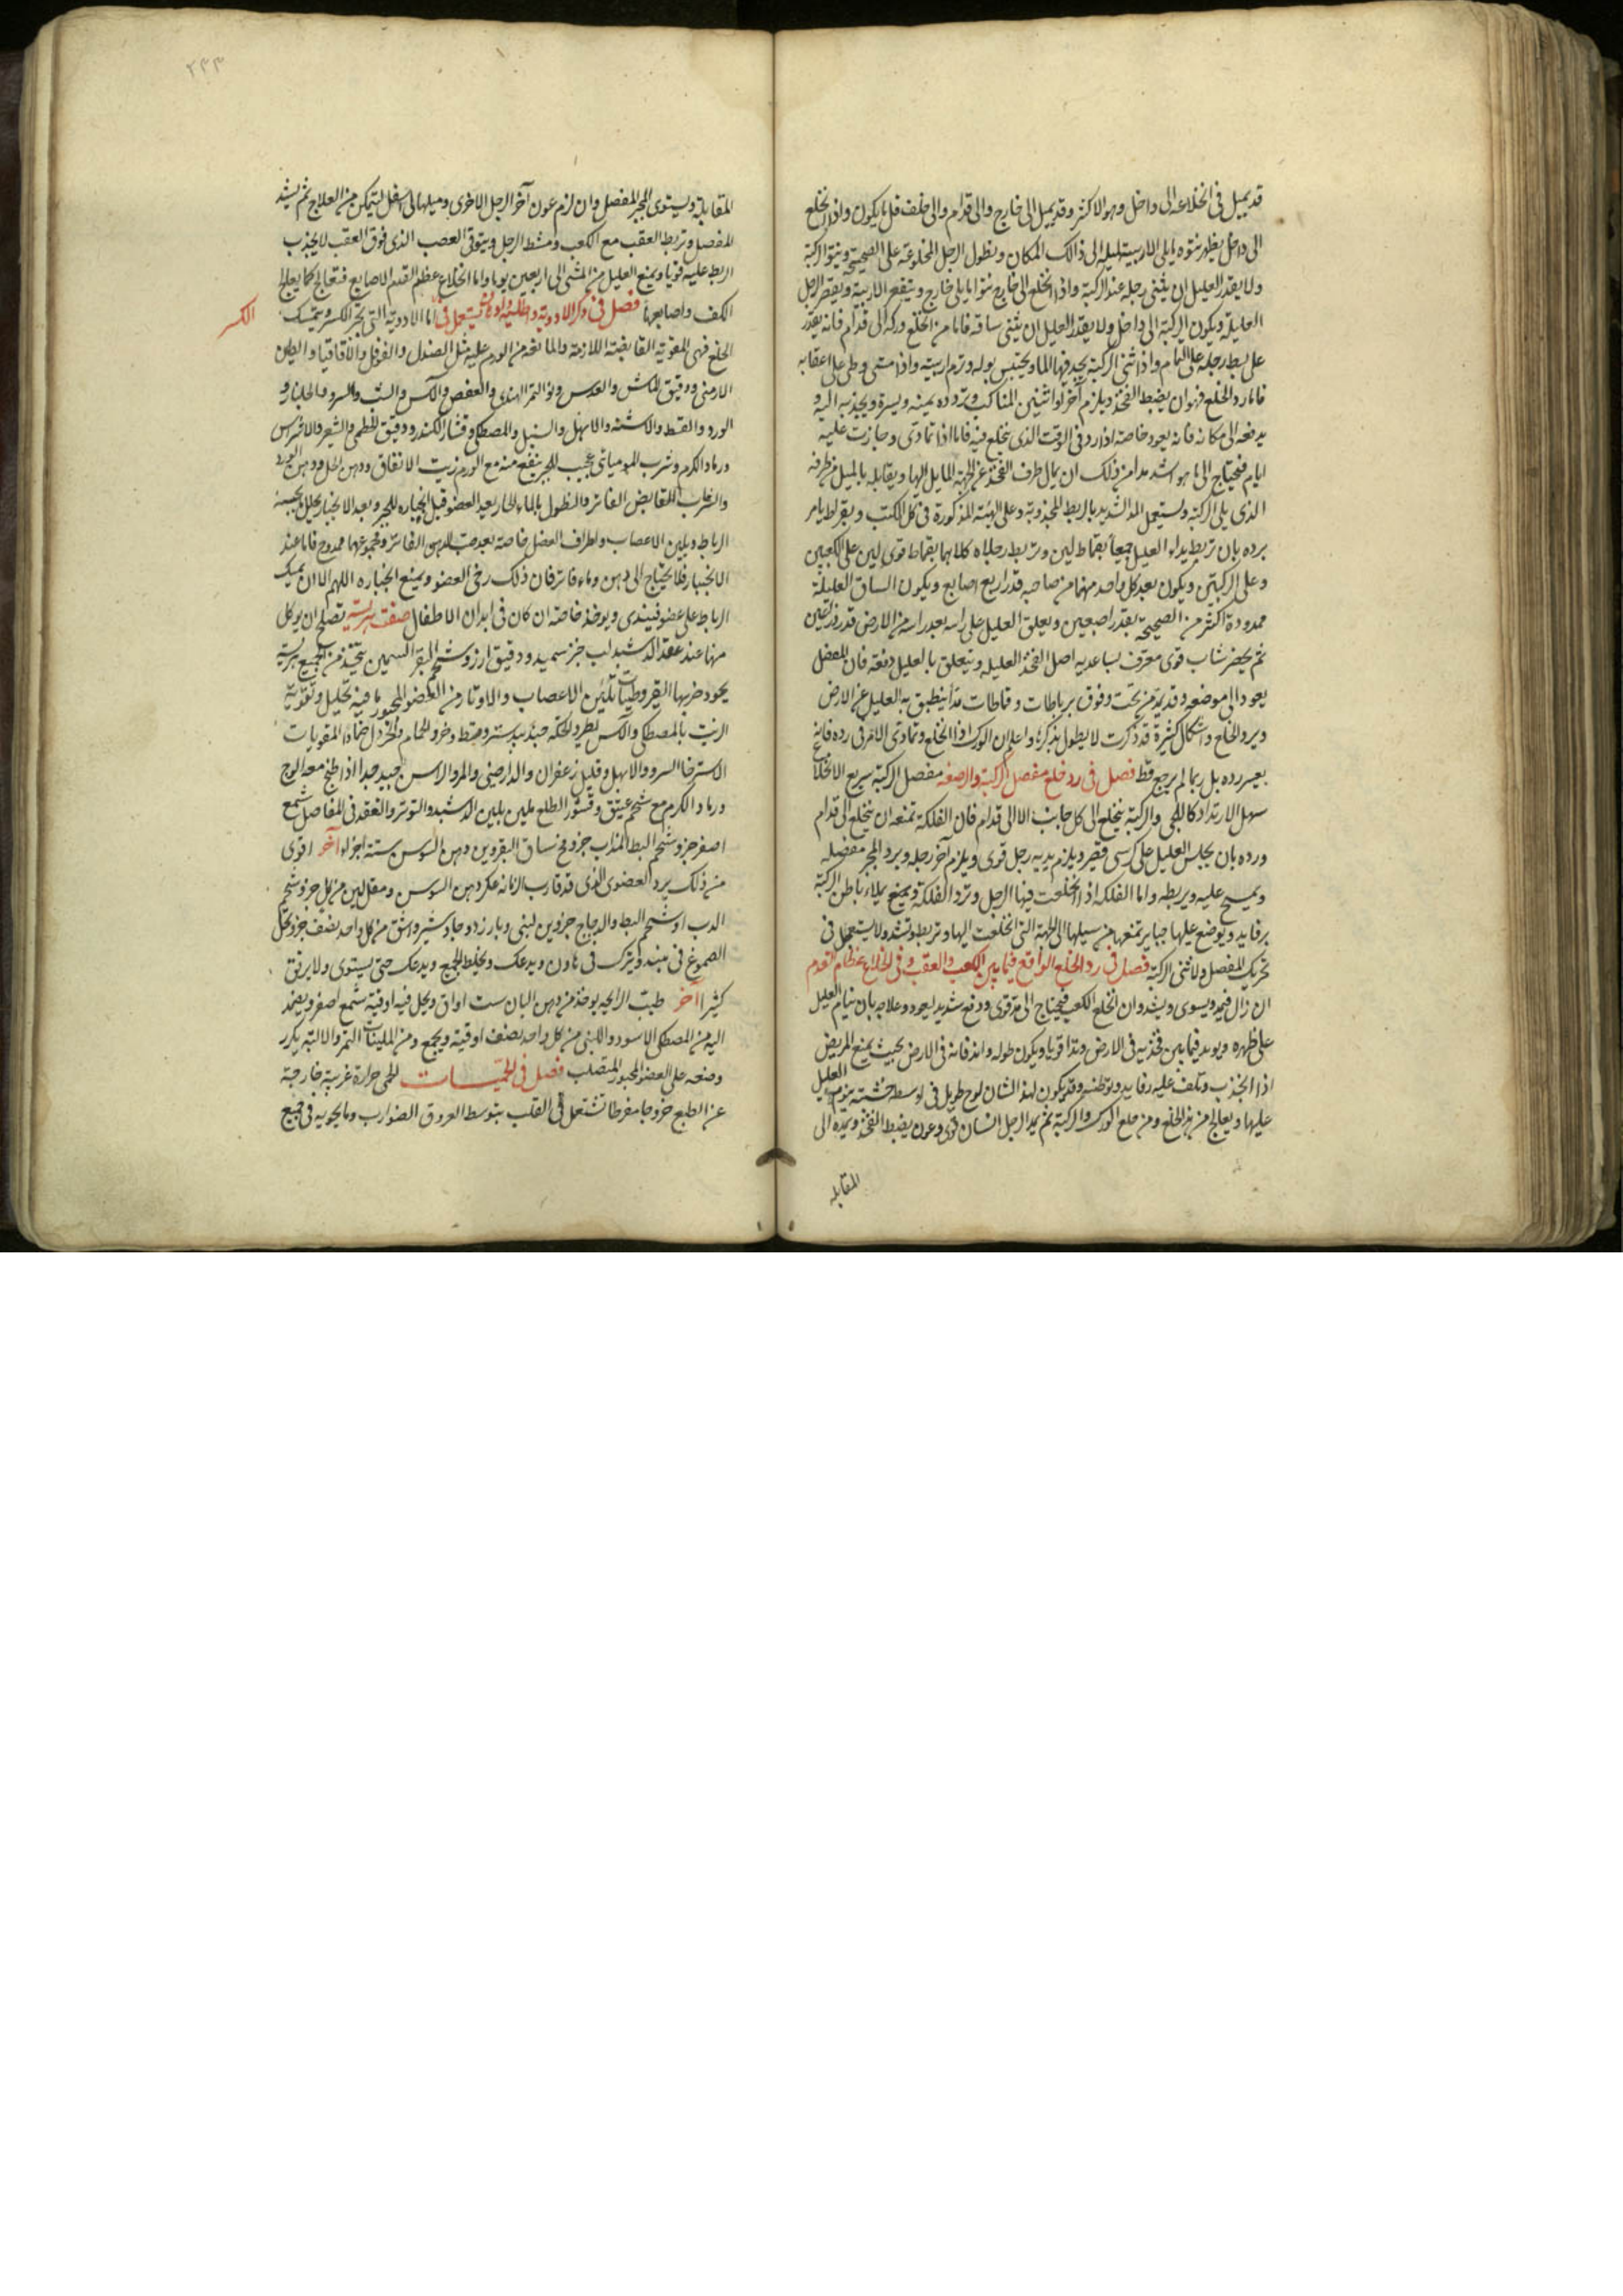 قد يميل في انخلاعه الى داخل وهو الاكثر وقد يميل الى خارج والى قدام والى خلف قل ما يكون واذا انخلع
الى داخل يظهر نتوه يلى الاربية الى ذالك المكان وتطول الرجل المخلوعة على الصحيحة وينتوا الركبة
ولا يقدر العليل ان يثنى رجله عند الركبة واذا انخلع الى خارج نتوا ما يلى خارج وينقعر الاربية ويقصر الرجل
العليلة ويكون الركبة الى داخل ولا يقدر العليل ان يثنى ساقه فاما من انخلع وركه الى قدام فانه يقدر
على بسط رجله على التمام واذا ثنى الركبة يجد فيها الما ويحتبس بوله وترم اربيته واذا مشى وطى على اعقابه
فاما رد الخلع فهو ان يضبط الفخذ ويلزم آخر لواثنين المناكب وتردده يمنه ويسرة ويجذبه اليه و
يدفعه الى مكانه فانه يعود خاصة اذا رد في الوقت الذى ينخلع فيه فاما اذا تمادى وجازت عليه
ايام فيحتاج الى ما هو اشد مدا من ذلك ان يمال طرف الفخذ عن الجهة المايل اليها ويقابله بالميل من طرفه
الذى يلى الركبة ويستعمل المد الشديد بالربط المجذوبة وعلى الهيئة المذكورة في كل الكتب وبقراط يامر
برده بان تربط يداه العليل جميعا بقماط لين وتربط رجلاه كلاهما بقماط قوى لين على الكعبين
وعلى الركبتين ويكون بعد كل واحد منهما من صاحبه قدر اربع اصابع ويكون الساق العليلة
ممدودة اكثر من الصحيحة بقدر اصبعين ويعلق العليل على راسه بعد راسه من الارض قدر ذراعين
ثم يحضر شاب قوى معترف بساعديه اصل الفخذ العليله ويتعلق بالعليل دفعه فان المفصل
يعود الى موضعه وقد يمد من تحت وفوق برباطات وقماطات مدا ينطبق به العليل عن الارض
ويرد الخلع واشكال كثيرة قد ذكرت لا يطول بذكرها واعلم ان الورك اذا انخلع وتمادى الامر في رده فانه
يعسر رده بل ربما لم يرجع قط فصل في رد خلع مفصل الركبة والرضفه مفصل الركبة سريع الانخلاع
سهل الارتداد كاللحى والركبة ينخلع الى كل جانب الا الى قدام فان الفلكة تمنعه ان ينخلع الى قدام
ورده بان يجلس العليل على كرسى قصير ويلزم يديه رجل قوى ويلزم آخر رجله ويرد المجبر مفصله
ويمسح عليه ويربطه واما الفلكه اذا انخلعت فيهنا الرجل وترد الفلكة ويمنع يملاء باطن الركبة
برفايد ويوضع عليها جباير تمنعها من سيلها الى الجهة التى انخلعت اليها وتربط وتشد ولا يستعجل في
تحريك المفصل ولا ثنى الركبة فصل في رد الخلع الواقع فيما بين الكعب والعقب وفي انخلاع عظام القدم
ان زال فيمد ويسوى ويشد وان انخلع الكعب فيحتاج الى مد قوى ودفع شديد ليعود وعلاجه بان ينام العليل
على ظهره ويوتد فيما بين فخذيه في الارض وتدا قويا ويكون طوله وانه فانه في الارض بحيث يمنع المريض
اذا انجذب وتلف عليه رفايد وتوطنه وقد يكون لهذا الشان لوح طويل في اوسطه خشبه ينوم العليل
عليها ويعالج من هذا الخلع ومن خلع الورك والركبة ثم يمد الرجل انسان قوى وعون يضبط الفخذ ويمده الى
المقابله
٢٣٣
المقابلة ويستوى المجبر المفصل وان لزم عون آخر الرجل الاخرى وميلها الى اسفل ليتمكن من العلاج ثم يشد
المفصل وتربط العقب مع الكعب ومشط الرجل ويتوقى العصب الذى فوق العقب لا يجذب
اربط عليه قويا ويمنع العليل من المشى الى اربعين يوما واما انخلاع عظم القدم الاصابع فتعالج كما يعالج
الكف واصابعها فصل في ذكر الادوية واطلية وادهان يستعمل في اما الادوية التى تجبر الكسر وتمسك
الكسر
الخلع فهى المقوية القابضة اللازمة والمانعة من الورم عليه مثل الصندل والفوفل والاقاقيا والطين
الارمنى ودقيق الماش والعدس ونوا التمر الهندى والعفص والآس والشب والسرو والجلنار و
الورد والقسط والاشنه والابهل والسنبل والمصطكى وقشار الكندر ودقيق الخطمى والشعير والاشراس
ورماد الكرم وشرب المومياى عجيب للجبر ينفع منه مع الورم زيت الانفاق ودهن الخل ودهن الورد
والشراب القابض الفاتر والنطول بالماء الحار بعيد العضو قبل انجباره للجبر وبعد الانجبار يحلل يجسه
الرباط ويلين الاعصاب واطراف العضل خاصة بعد صب الدهن الفاتر ومجموعهما ممدوح فاما عند
الانجبار فلا يحتاج الى دهن وماء فاتر فان ذلك رخى العضو ويمنع انجباره اللهم الا ان يمسك
الرباط على عضو فيندى ويوخذ خاصة ان كان في ابدان الاطفال صفت هريسة تصلح ان يوكل
منها عند عقد الدشبد لب خبز سميد ودقيق ارز وشحم البقر السمين يتخذ من الجميع هريسة
يجود ضربها القيروطيات تليين الاعصاب والاوتار من العضو المجبور ما فيه تحليل وتقوية
الزيت بالمصطكى والآس يطرد لحكه جندبيدستر وقسط وخرو الحمام والخردل ضمادا المقويات
الاسترخا السرو والابهل وقليل زعفران والدارصينى والمر والراسن جيد جدا اذا طبخ معه الوج
ورماد الكرم مع شحم عتيق وقشور الطلع ملين يلين الدشبد والتوتر والعقد في المفاصل شمع
اصفر جزو شحم البط المذاب جزو مخ ساق البقر وين دهن السوسن ستة اجزاء آخر اقوى
من ذلك يرد العضوى الذى قد قارب الزمانه عكر دهن السوسن ومقل لين من كل جزو شحم
الدب او شحم البط والدجاج جزوين لبنى وبارزد وجاوشير واشق من كل واحد نصف جزو تحل
الصموغ في نبيذ وتترك في هاون ويدعك ويخلط الجميع ويدعك حتى يستوى ولا يرنق
كثيرا آخر طيب الرايحه يوخذ من دهن البان ست اواق ويحل فيه اوقية شمع اصفر ويضمد
اليه من المصطكى الاسود واللبنى من كل واحد نصف اوقية ويجمع ومن الملينات التمر والالية يكرر
وضعه على العضو المجبور المتصلب فصل في الحميات الحمى حرارة غريبة خارجة
عن الطبع خروجا مفرطا تشتعل في القلب بتوسط العروق الضوارب وما يحويه في جميع